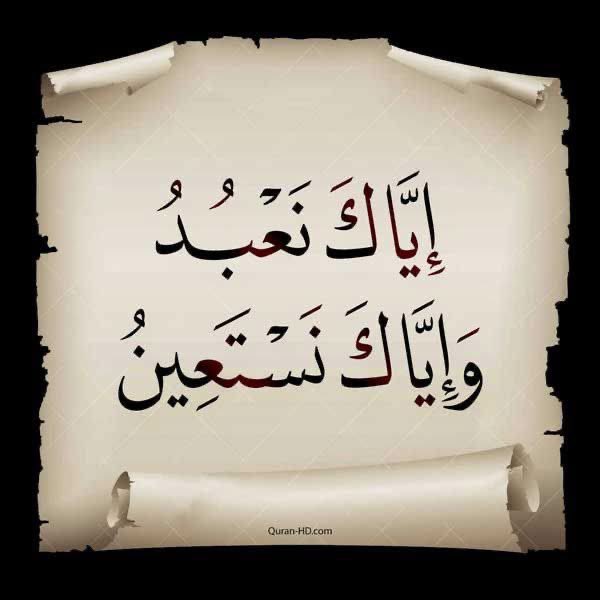 إِيَّاكَ نَعْبُدُ
وَإِيَّاكَ نَسْتَعِينُ
Quran-HD.com